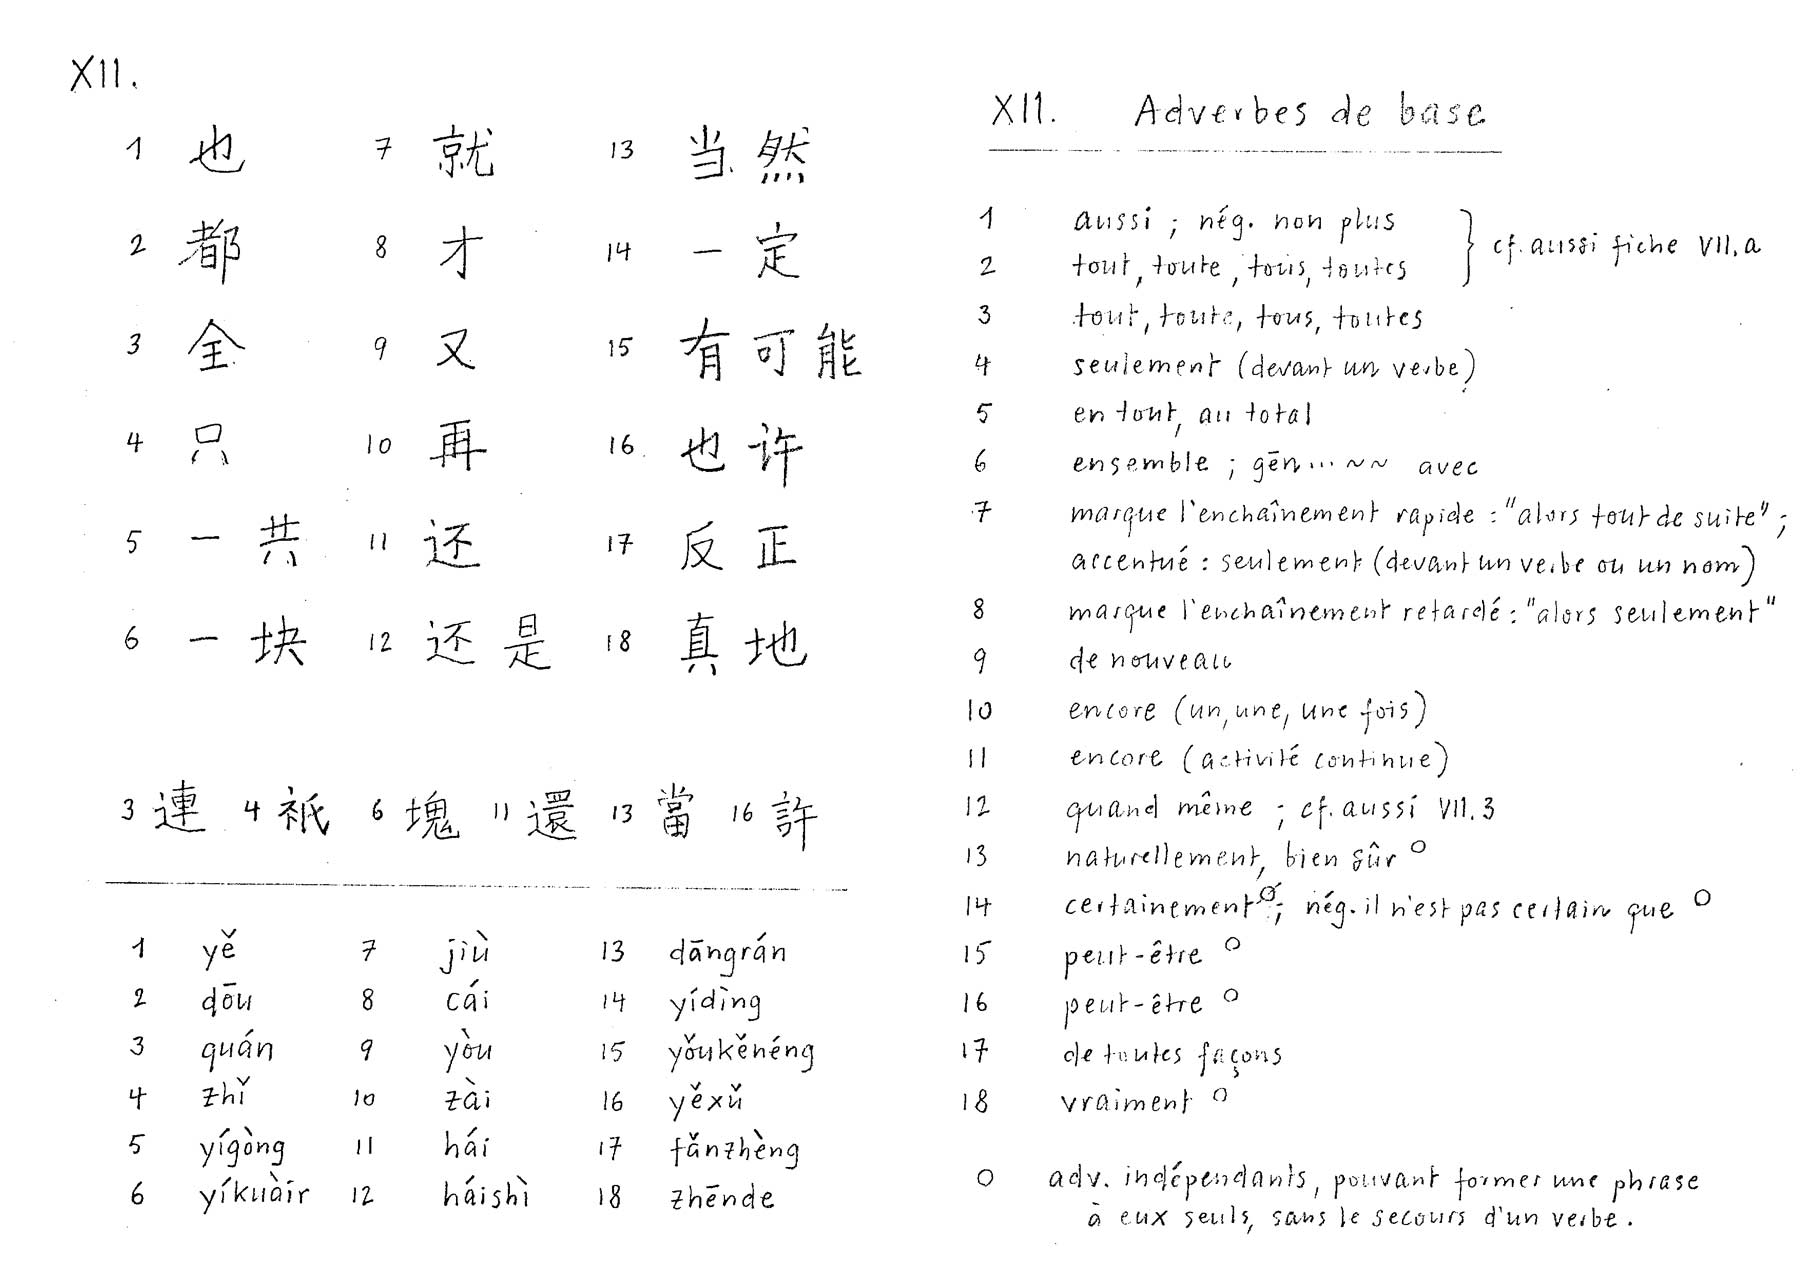 XII.
1 也 7 就 13 当然
2 都 8 才 14 一定
3 全 9 又 15 有可能
4 只 10 再 16 也许
5 一共 11 还 17 反正
6 一块 12 还是 18 真地
3 連 4 祇 6 塊 11 還 13 當 16 許
1 yě 7 jiù 13 dāngrán
2 dōu 8 cái 14 yídìng
3 quán 9 yòu 15 yǒukěnéng
4 zhǐ 10 zài 16 yěxǔ
5 yígòng 11 hái 17 fǎnzhèng
6 yíkuàir 12 háishì 18 zhēnde
XII. Adverbes de base
1 aussi ; nég. non plus
2 tout, toute, tous, toutes
} cf. aussi fiche VII.a
3 tout, toute, tous, toutes
4 seulement (devant un verbe)
5 en tout, au total
6 ensemble ; gēn... ~~ avec
7 marque l'enchaînement rapide : "alors tout de suite" ;
accentué : seulement (devant un verbe ou un nom)
8 marque l'enchaînement retardé : "alors seulement"
9 de nouveau
10 encore (un, une, une fois)
11 encore (activité continue)
12 quand même ; cf. aussi VII.3
13 naturellement, bien sûr o
14 certainement o ; nég. il n'est pas certain que o
15 peut-être o
16 peut-être o
17 de toutes façons
18 vraiment o
o adv. indépendants, pouvant former une phrase
à eux seuls, sans le secours d'un verbe.